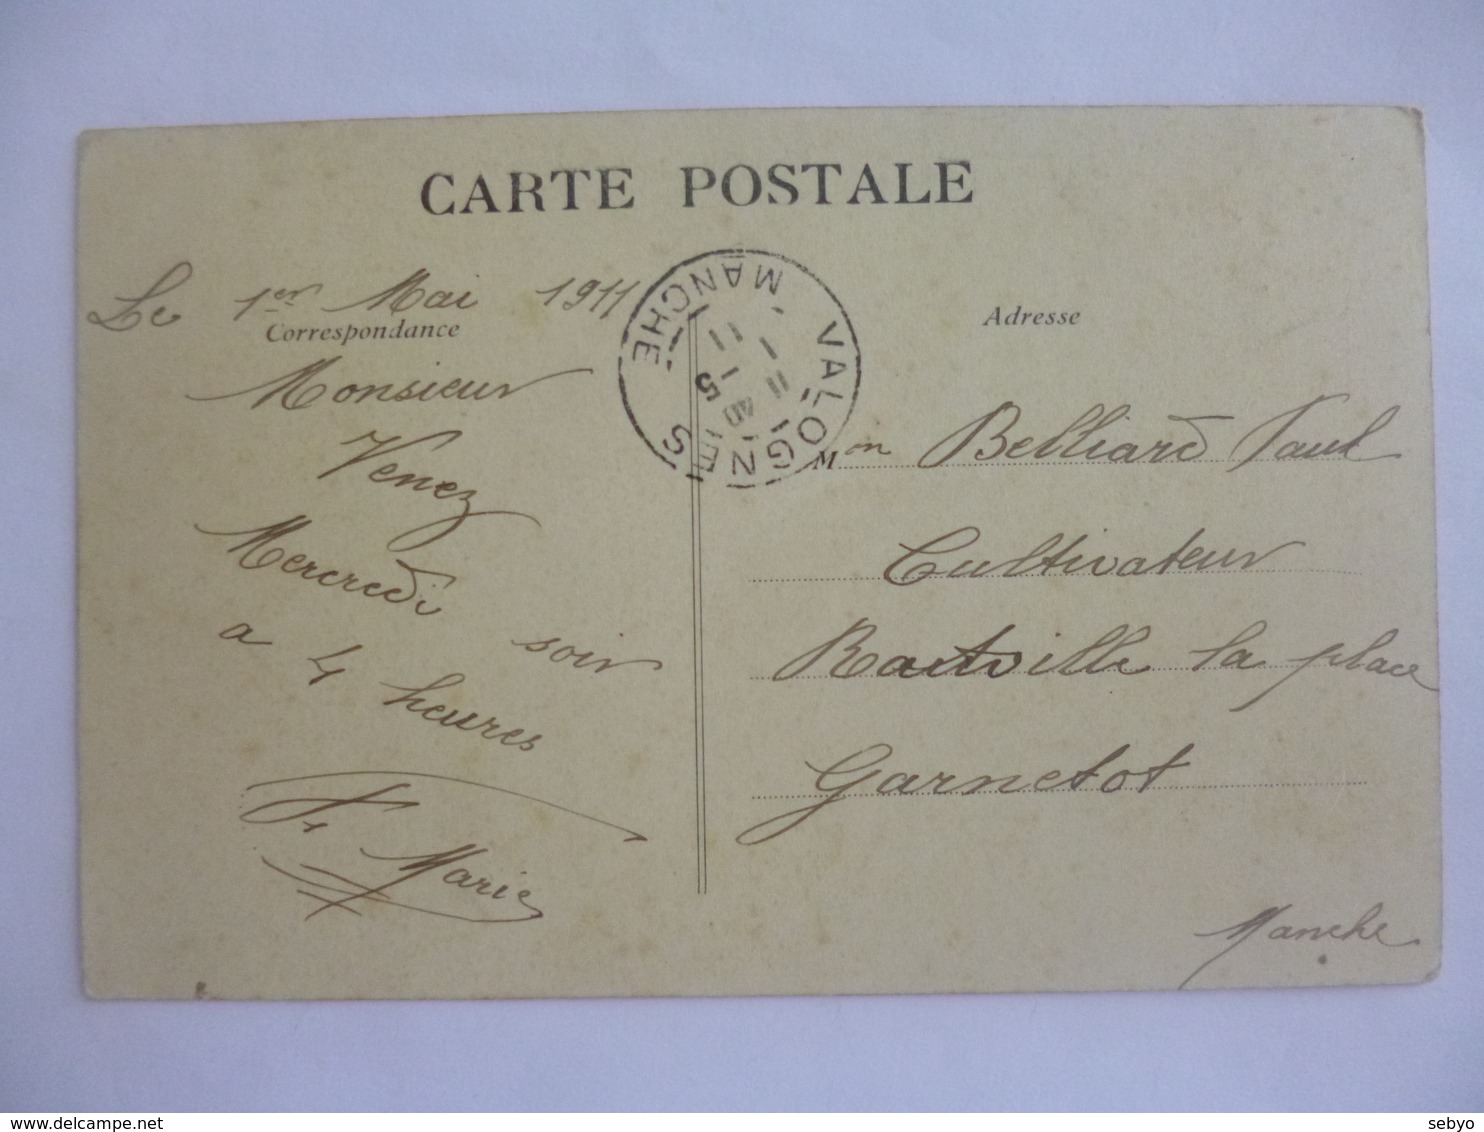 CARTE POSTALE
Le 1er Mai 1911
Correspondance
Monsieur
Venez
Mercredi
soir
a 4 heures
Fr Marie
VALOGNES
MANCHE
11 40
1 - 5
11
Adresse
Mon Belliard Paul
Cultivateur
Rauville la place
Garnetot
Manche
sebyo